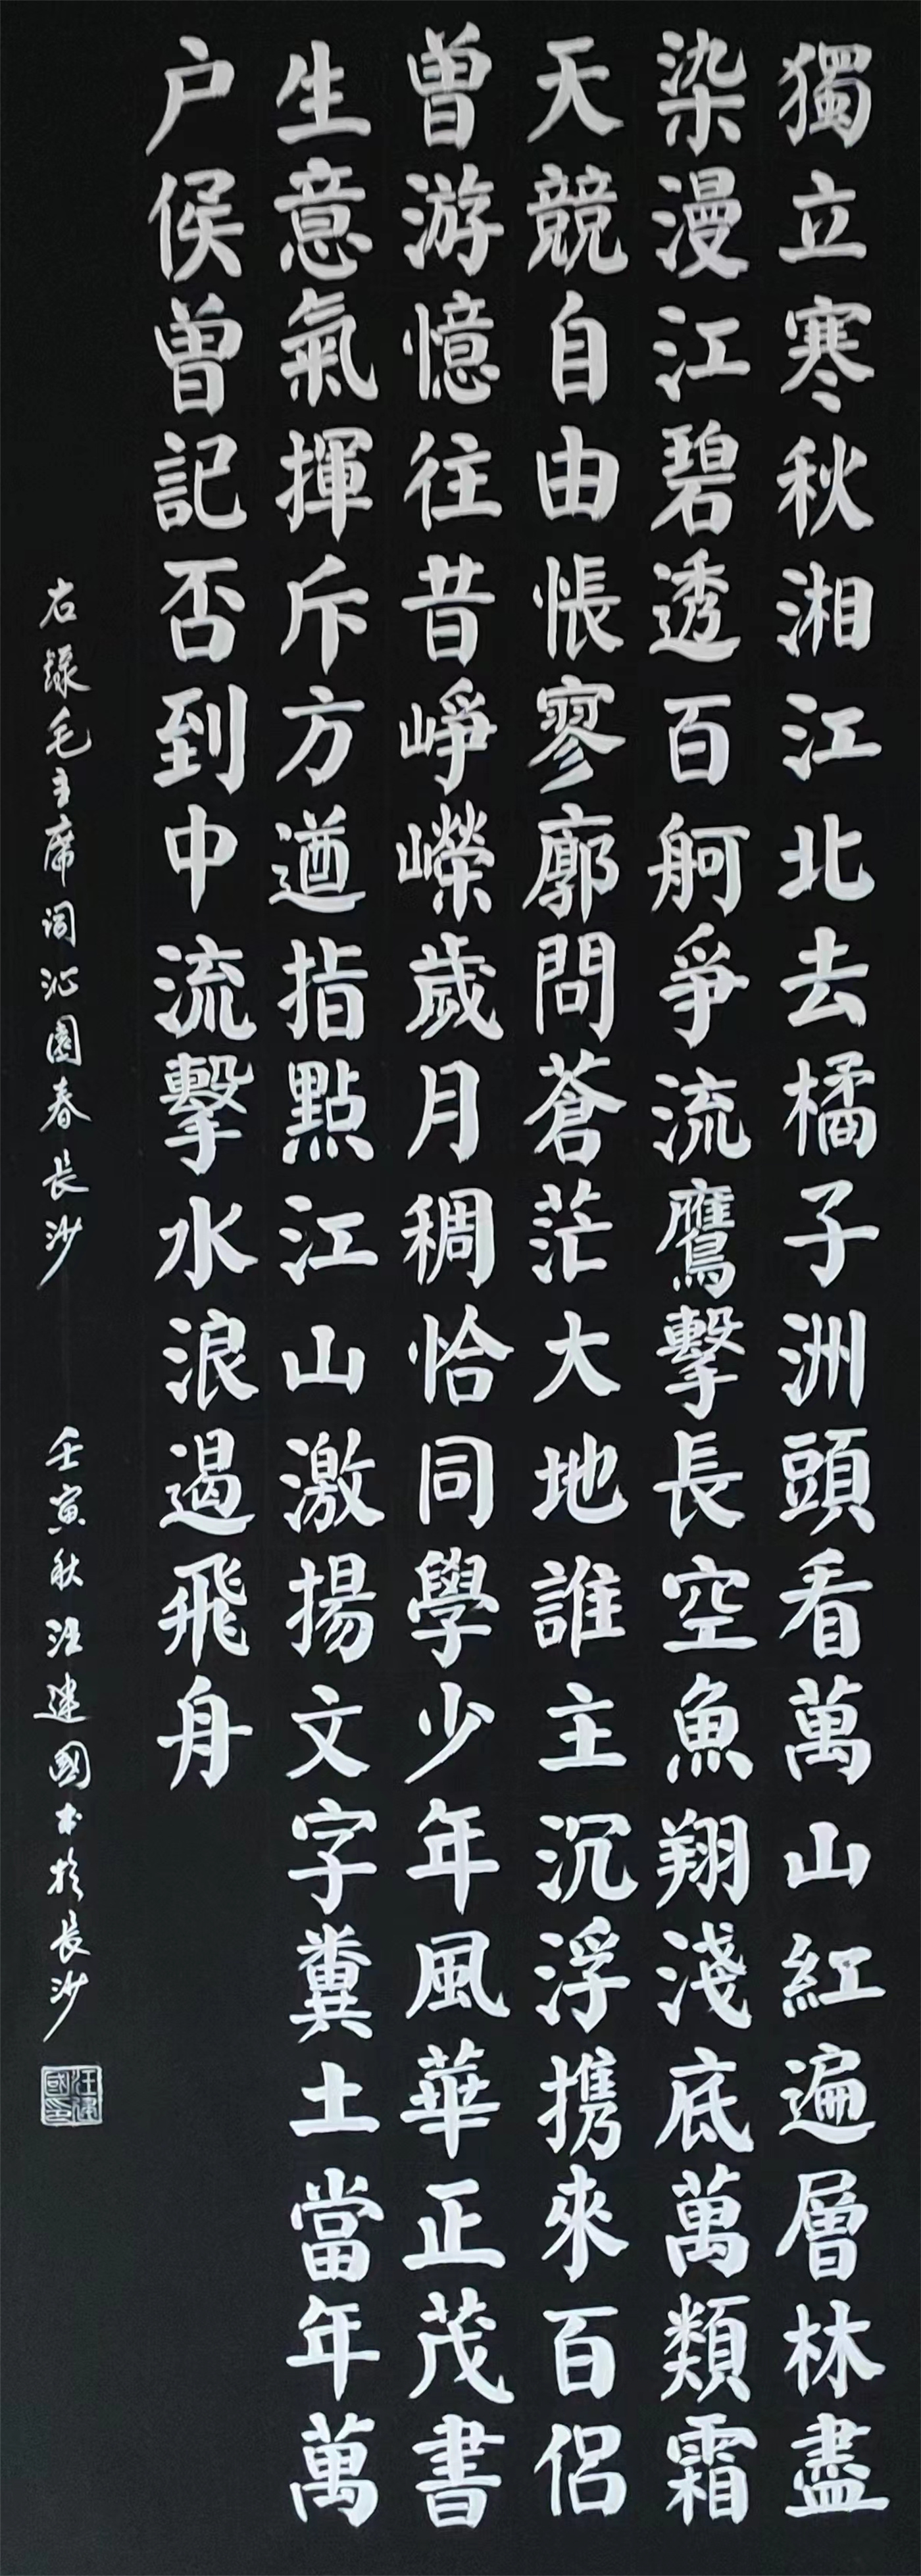 獨立寒秋湘江北去橘子洲頭看萬山紅遍層林盡
染漫江碧透百舸爭流鷹擊長空魚翔淺底萬類霜
天競自由悵寥廓問蒼茫大地誰主沉浮携來百侣
曾游憶往昔崢嶸歲月稠恰同學少年風華正茂書
生意氣揮斥方遒指點江山激揚文字糞土當年萬
户侯曾記否到中流擊水浪遏飛舟
右錄毛主席詞沁園春長沙
壬寅秋汪建國书於長沙
汪建國印